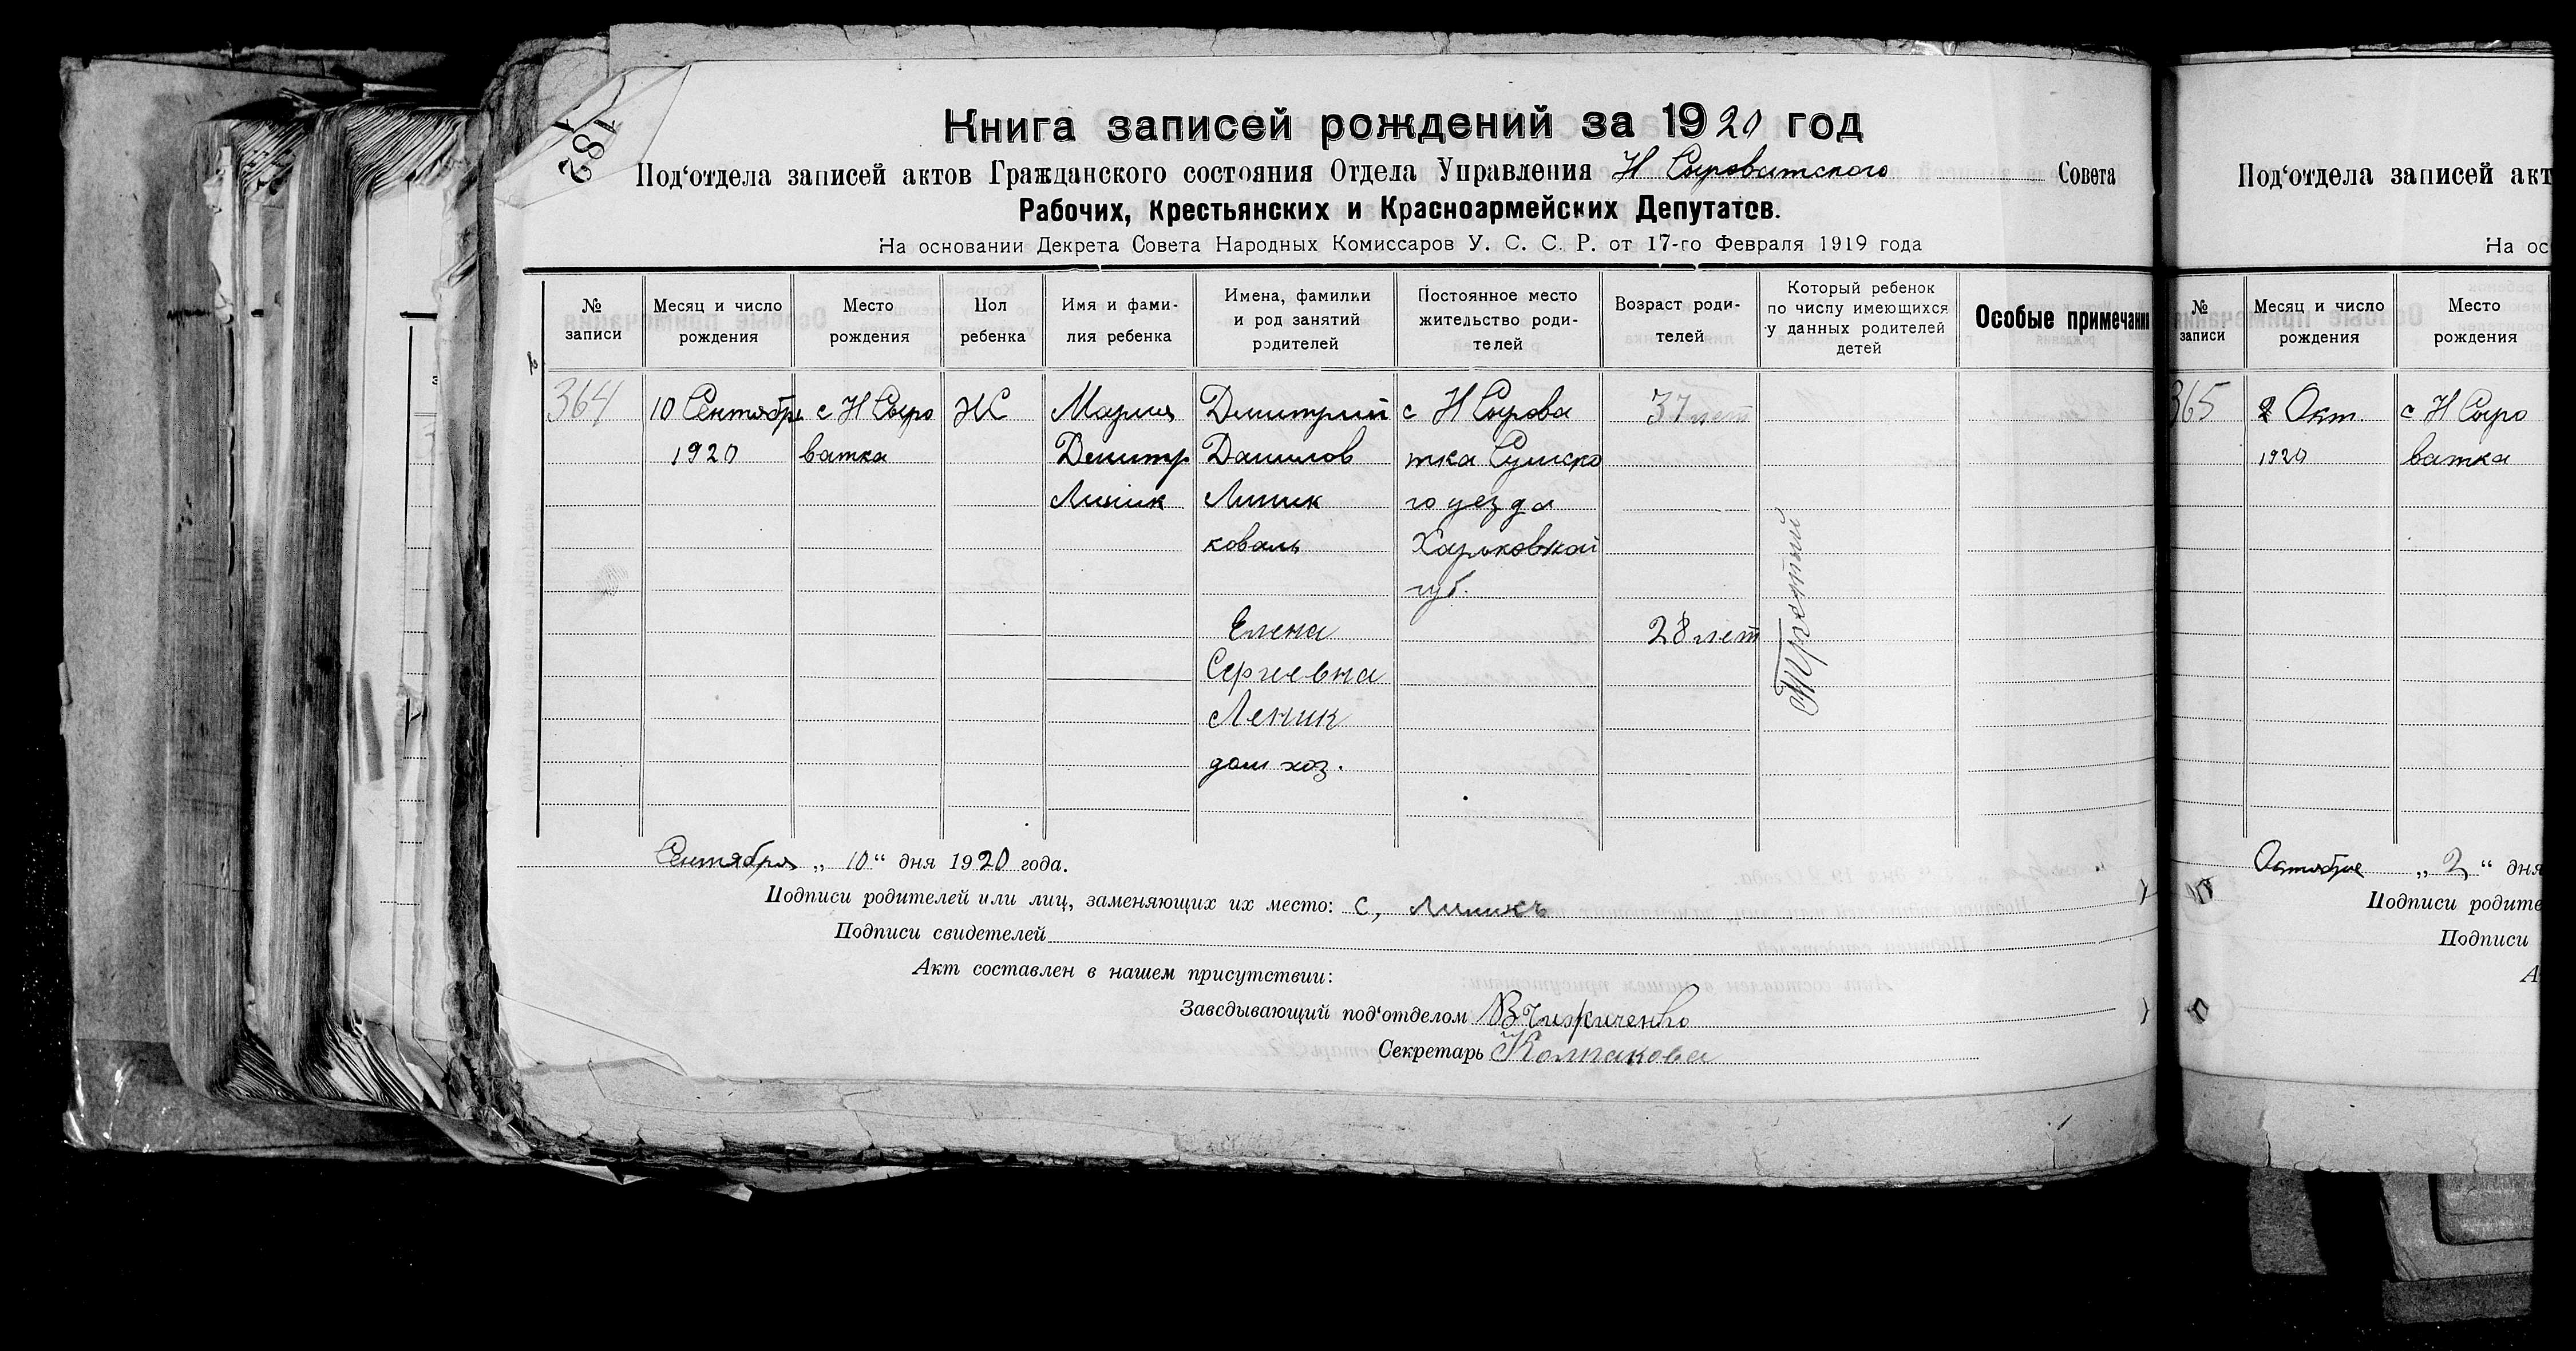 182
Книга записей рождений за 1920 год
Под‘отдела записей актов Гражданского состояния Отдела Управления Н Сыроватского Совета
Рабочих, Крестьянских и Красноармейских Депутатов.
На основании Декрета Совета Народных Комиссаров У. С. С. Р. от 17-го Февраля 1919 года
№ записи
Месяц и число рождения
Место рождения
Пол ребенка
Имя и фами-
лия ребенка
Имена, фамилии
и род занятий
родителей
Постоянное место
жительство роди-
телей
Возраст роди-
телей
Который ребенок
по числу имеющихся
у данных родителей
детей
Особые примечания
364
10 Сентября
1920
с Н Сыро
ватка
ЖС
Мария
Дмитр
Линик
Дмитрий
Данилов
Линик
коваль
Елена
Сергиевна
Леник
дом хоз.
с Н Сырова
тка Сумско
го уезда
Харьковской
губ.
37 лет
28 лет
Третий
Сентября „ 10 “ дня 1920 года.
Подписи родителей или лиц, заменяющих их место: С, Линикъ
Подписи свидетелей
Акт составлен в нашем присутствии:
Заведывающий под‘отделом
Секретарь Колпакова
Под‘отдела записей акт
На ос
№ записи
Месяц и число рождения
Место рождения
365
2 Окт.
1920
с Н Сыро
ватка
Октября „ 2 “ дня
Подписи родите
Подписи
А